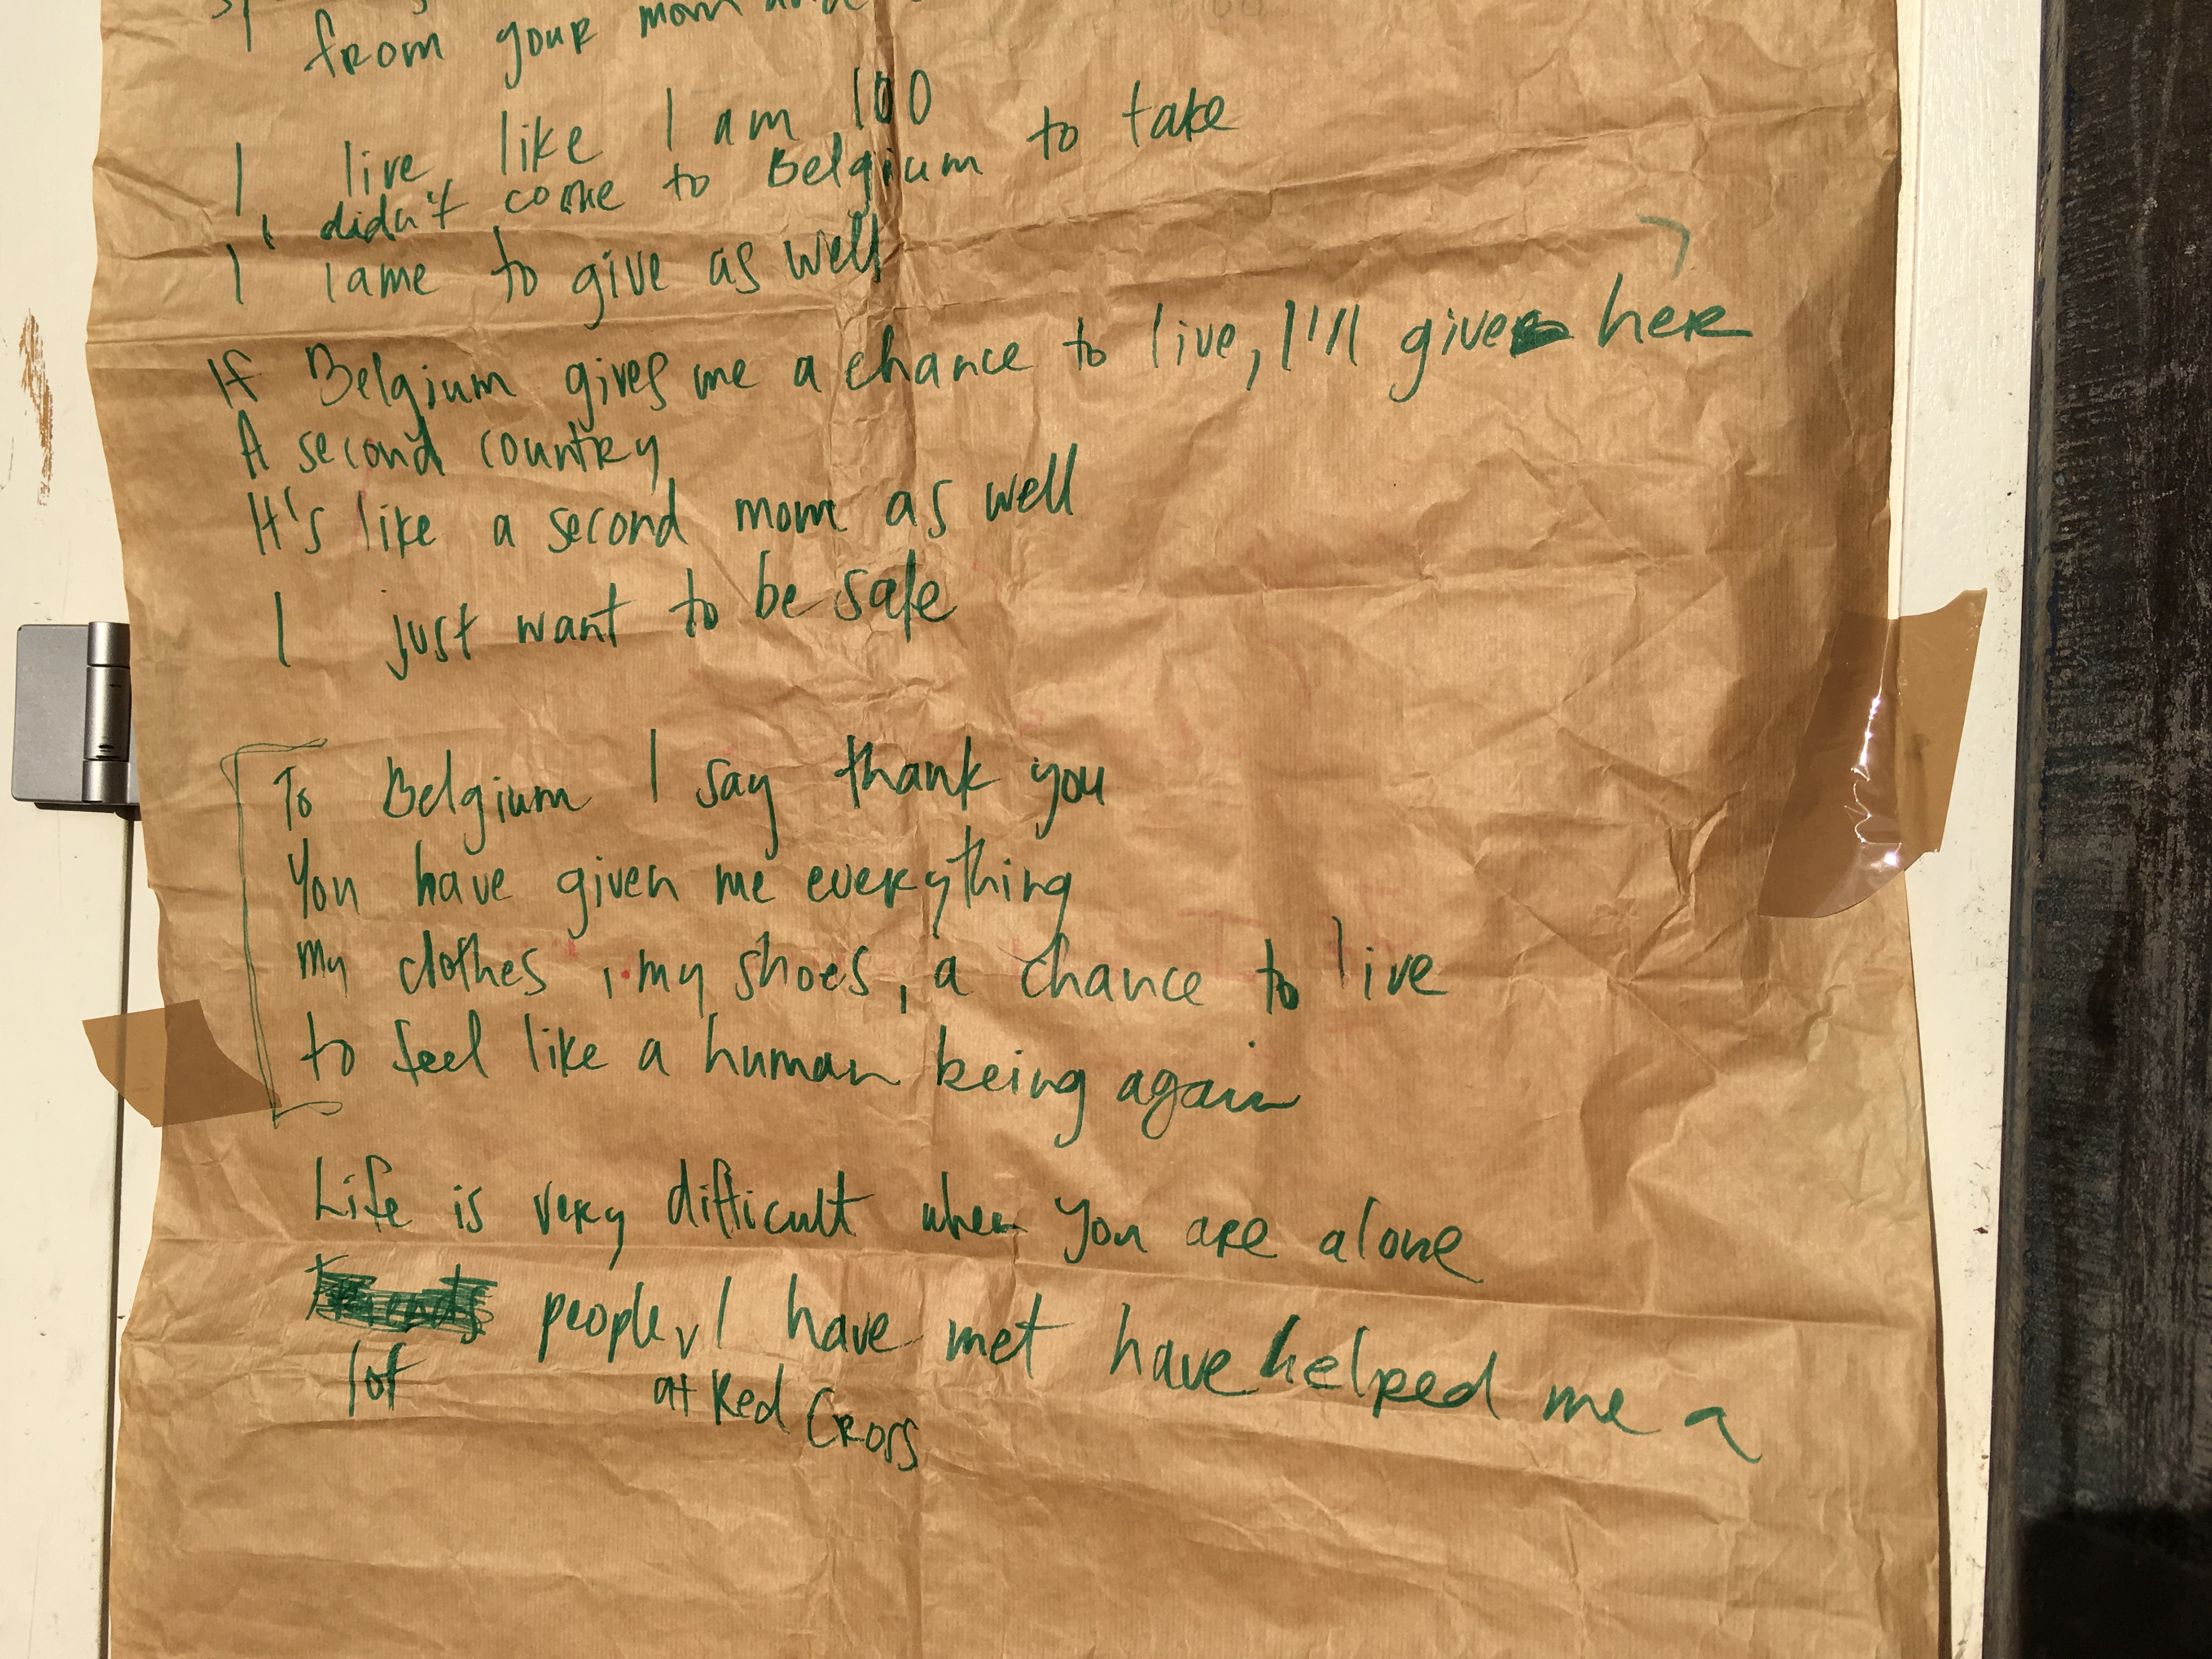 from your mom and
I live like I am 100
I didn't come to Belgium to take
I came to give as well
If Belgium gives me a chance to live, I'll give her
A second country
It's like a second mom as well
I just want to be safe
To Belgium I say thank you
You have given me everything
my clothes, my shoes, a chance to live
to feel like a human being again
Life is very difficult when you are alone
people, I have met have helped me a
lot at Red Cross